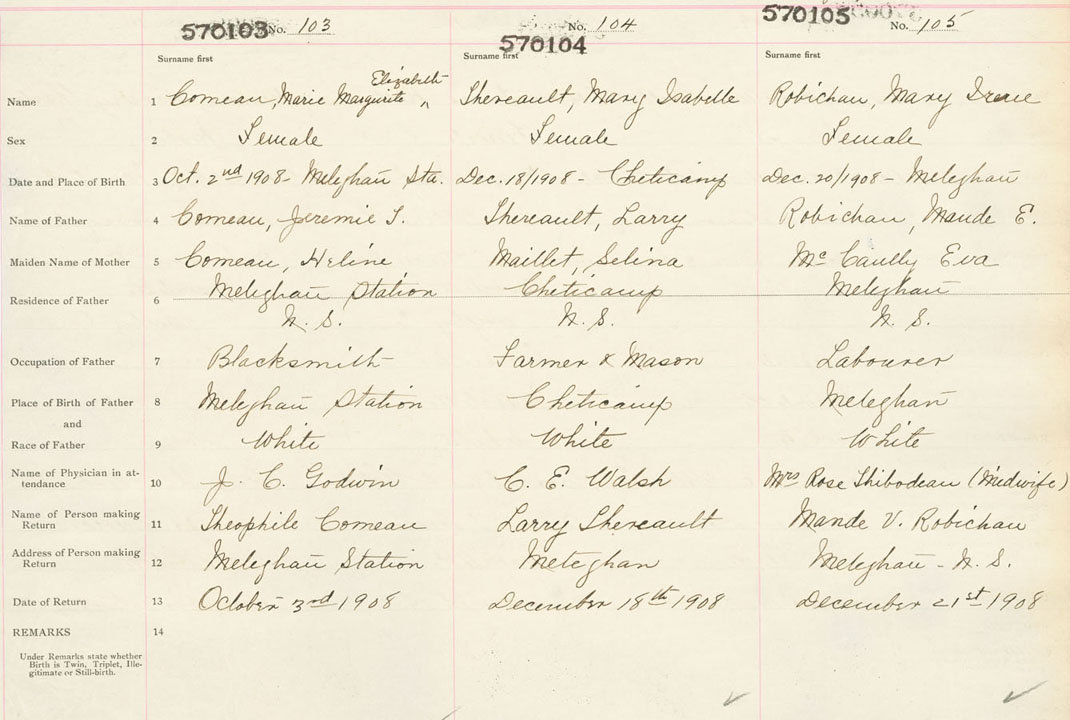 570103 No. 103 570104 No. 104 570105 No. 105
Surname first Surname first Surname first
Elizabeth
Name 1 Comeau, Marie Margurite ^ Thereault, Mary Isabelle Robichau, Mary Irene
Sex 2 Female Female Female
Date and Place of Birth 3 Oct. 2nd 1908 - Meteghan Sta. Dec. 18/1908 - Cheticamp Dec. 20/1908 - Meteghan
Name of Father 4 Comeau, Jeremie T. Thereault, Larry Robichau, Mande E.
Maiden Name of Mother 5 Comeau, Heline Maillet, Selina Mc Caully Eva
Residence of Father 6 Meteghan Station Cheticamp Meteghan
N. S. N. S. N. S.
Occupation of Father 7 Blacksmith Farmer & Mason Labourer
Place of Birth of Father 8 Meteghan Station Cheticamp Meteghan
and
Race of Father 9 White White White
Name of Physician in at-
tendance 10 J. C. Godwin C. E. Walsh Mrs Rose Thibodeau (Midwife)
Name of Person making
Return 11 Theophile Comeau Larry Thereault Mande V. Robichau
Address of Person making
Return 12 Meteghan Station Meteghan Meteghan - N. S.
Date of Return 13 October 3rd 1908 December 18th 1908 December 21st 1908
REMARKS 14
Under Remarks state whether
Birth is Twin, Triplet, Ille-
gitimate or Still-birth.